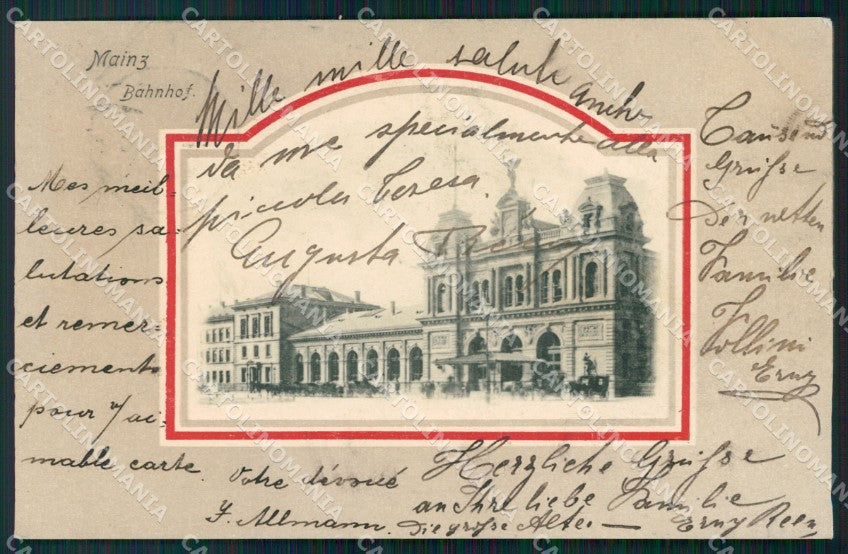 Mainz
Bahnhof.
Mille mille salute anche
da me specialmente alla
piccola Teresa.
Augusta
Mes meil-
leures sa-
lutations
et remer-
ciements
pour l'ai-
mable carte
Votre dévoué
J. Allmann.
Tausend
Grüße
Der netten
Familie
Follini
Erny
Herzliche Grüße
an Ihre liebe Familie
Die große Alte
Erny
CARTOLINOMANIA